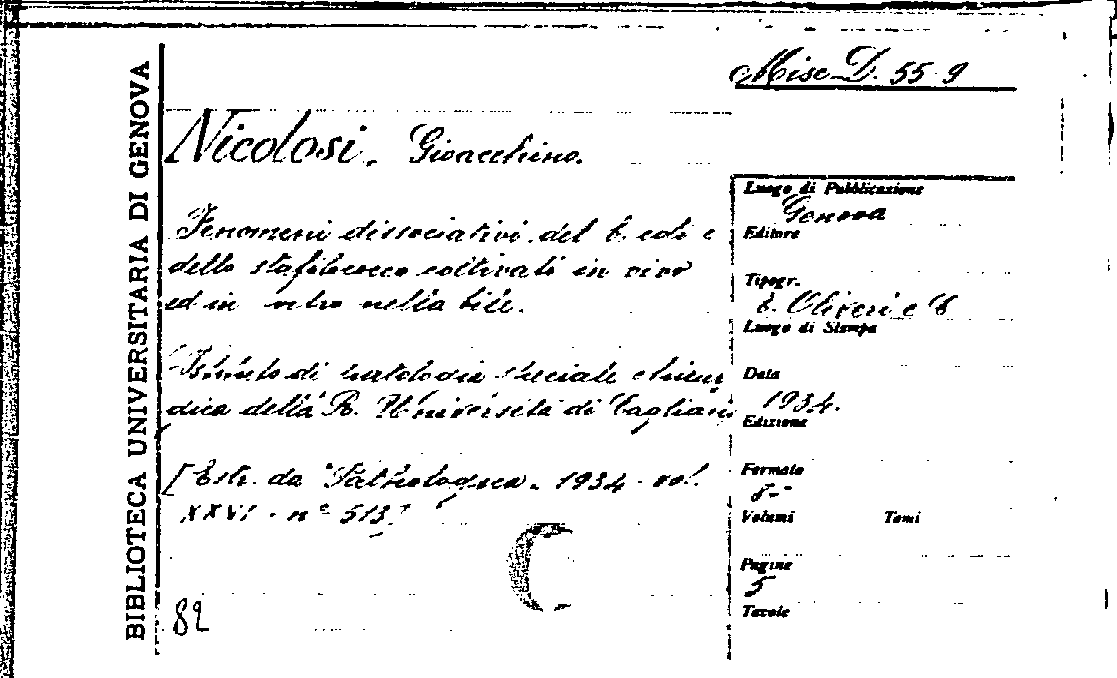 BIBLIOTECA UNIVERSITARIA DI GENOVA
Misc D. 55-9
Nicolosi, Gioacchino.
Fenomeni dissociativi del b. coli e
dello stafilococco coltivati in vivo
ed in vitro nella bile.
Istituto di patologia speciale chirur
gica della R. Università di Cagliari
[Estr. da "Pathologica" 1934 - vol.
XXVI - n° 513]
82
Luogo di Pubblicazione
Genova
Editore
Tipogr.
Oliveri e C
Luogo di Stampa
Data
1934.
Edizione
Formato
8-°
Volumi Tomi
Pagine
5
Tavole